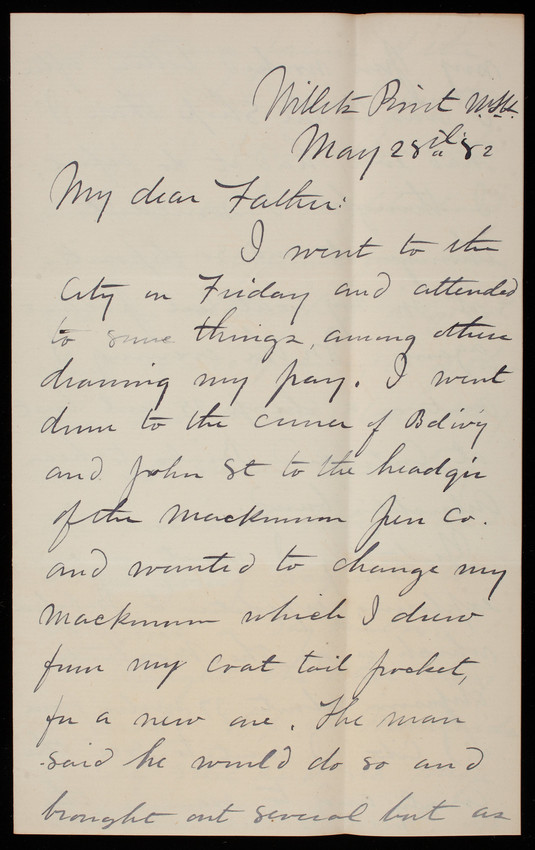 Willets Point N.Y.H.
May 28th 82
My dear Father:
I went to the
City on Friday and attended
to some things, among others
drawing my pay. I went
down to the corner of Bdwy
and John St to the headqrs
of the Mackinnon Pen Co.
and wanted to change my
Mackinnon which I drew
from my coat tail pocket,
for a new one. The man
said he would do so and
brought out several but as